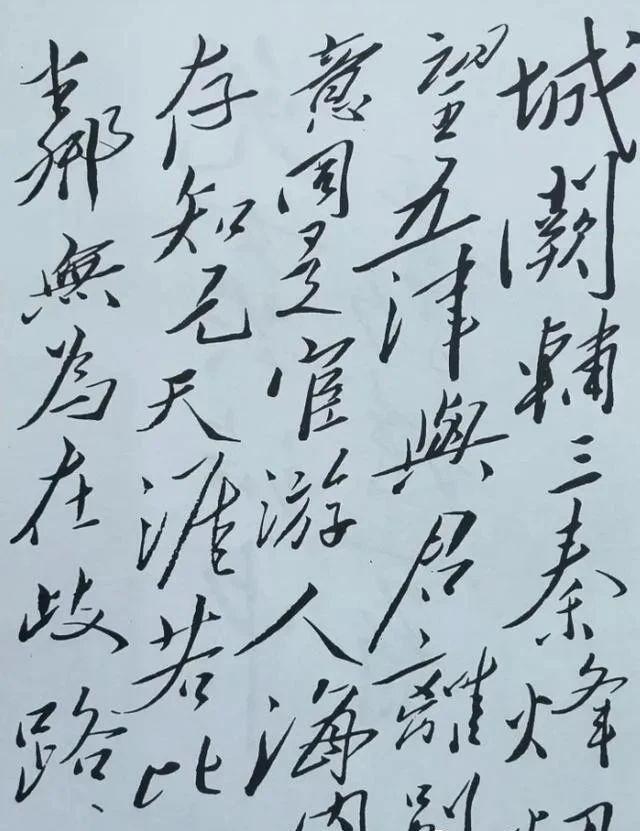 城闕輔三秦烽
望五津與君離別
意同是宦游人海内
存知己天涯若比
鄰無為在歧路